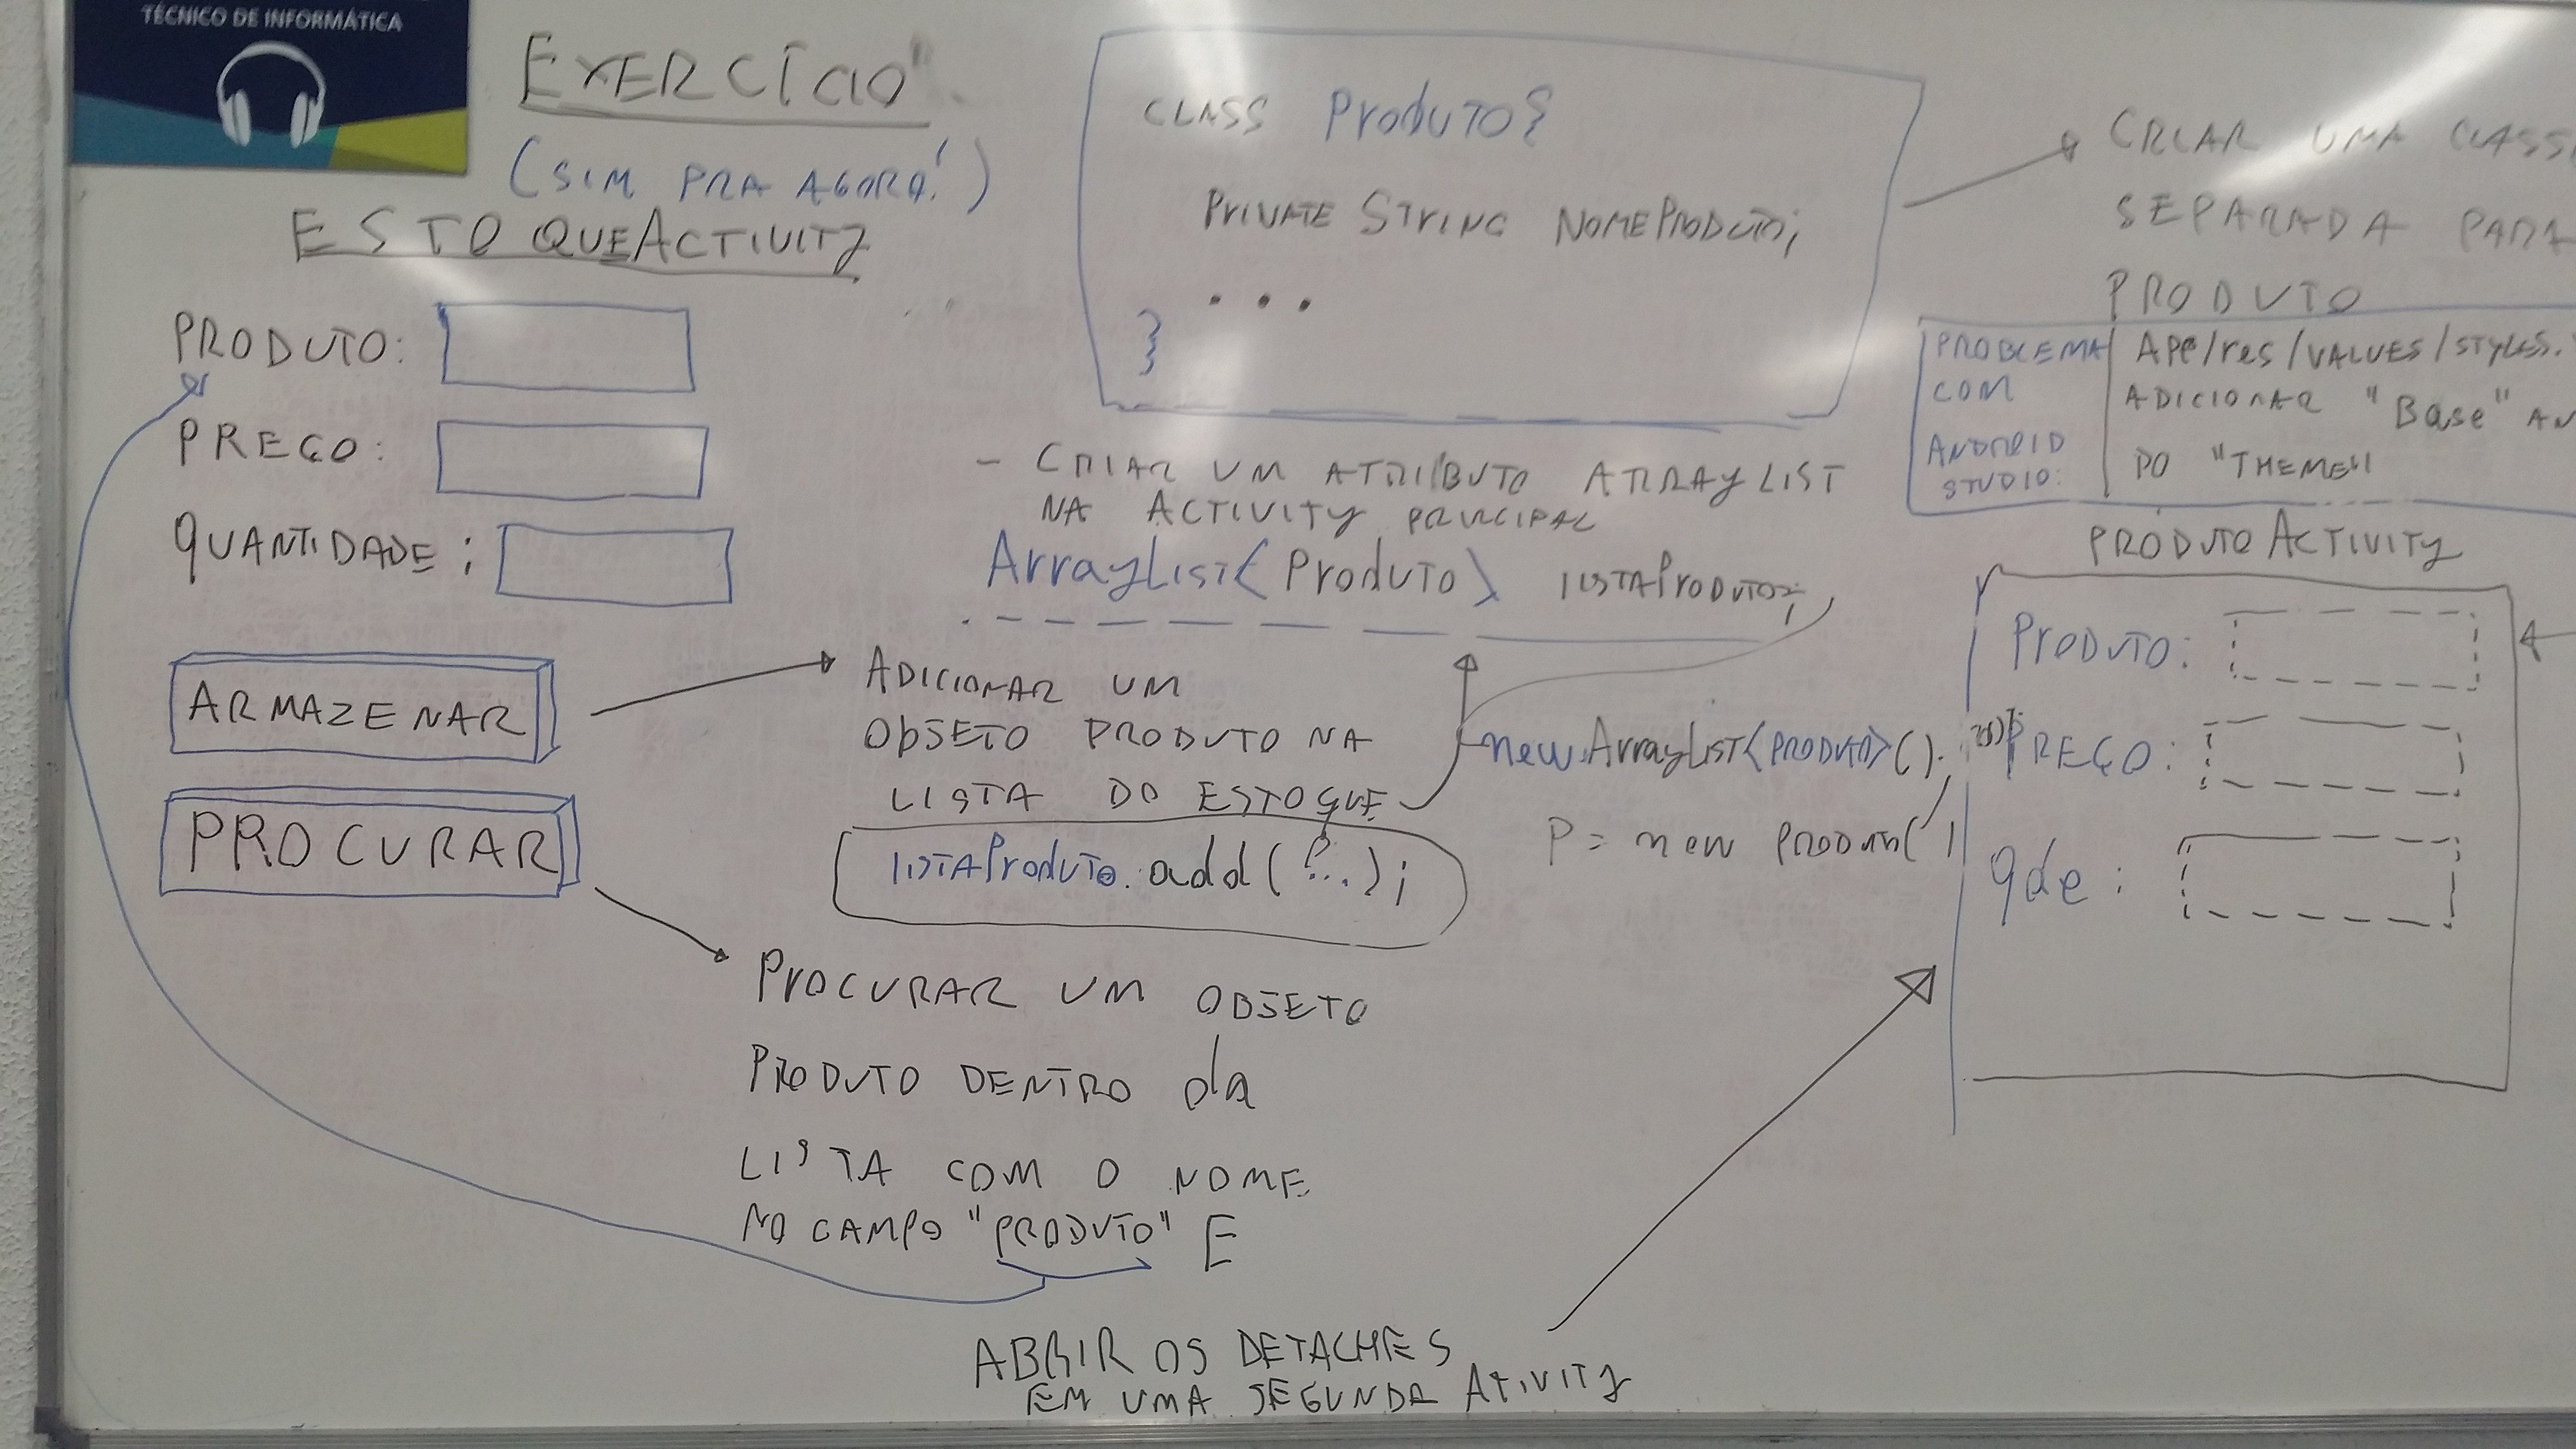 TÉCNICO DE INFORMÁTICA
EXERCÍCIO
(SIM PRA AGORA!)
ESTOQUEACTIVITY
PRODUTO:
PREÇO:
QUANTIDADE:
ARMAZENAR
PROCURAR
CLASS Produto{
PRIVATE STRING NOMEPRODUTO;
...
}
CRIAR UMA CLASS
SEPARADA PARA
PRODUTO
PROBLEMA
COM
ANDROID
STUDIO:
APP/res/VALUES/STYLES.
ADICIONAR "Base" AN
DO "THEME"
- CRIAR UM ATRIBUTO ARRAYLIST
NA ACTIVITY PRINCIPAL
ArrayList<Produto> LISTAPRODUTO;
ADICIONAR UM
OBJETO PRODUTO NA
LISTA DO ESTOQUE
new ArrayList<PRODUTO>();
listaProduto.add(P...);
P = new PRODUTO(
PROCURAR UM OBJETO
PRODUTO DENTRO da
LISTA COM O NOME
NO CAMPO "PRODUTO" E
ABRIR OS DETALHES
EM UMA SEGUNDA ATIVITY
PRODUTO ACTIVITY
PRODUTO:
PREÇO:
qde: